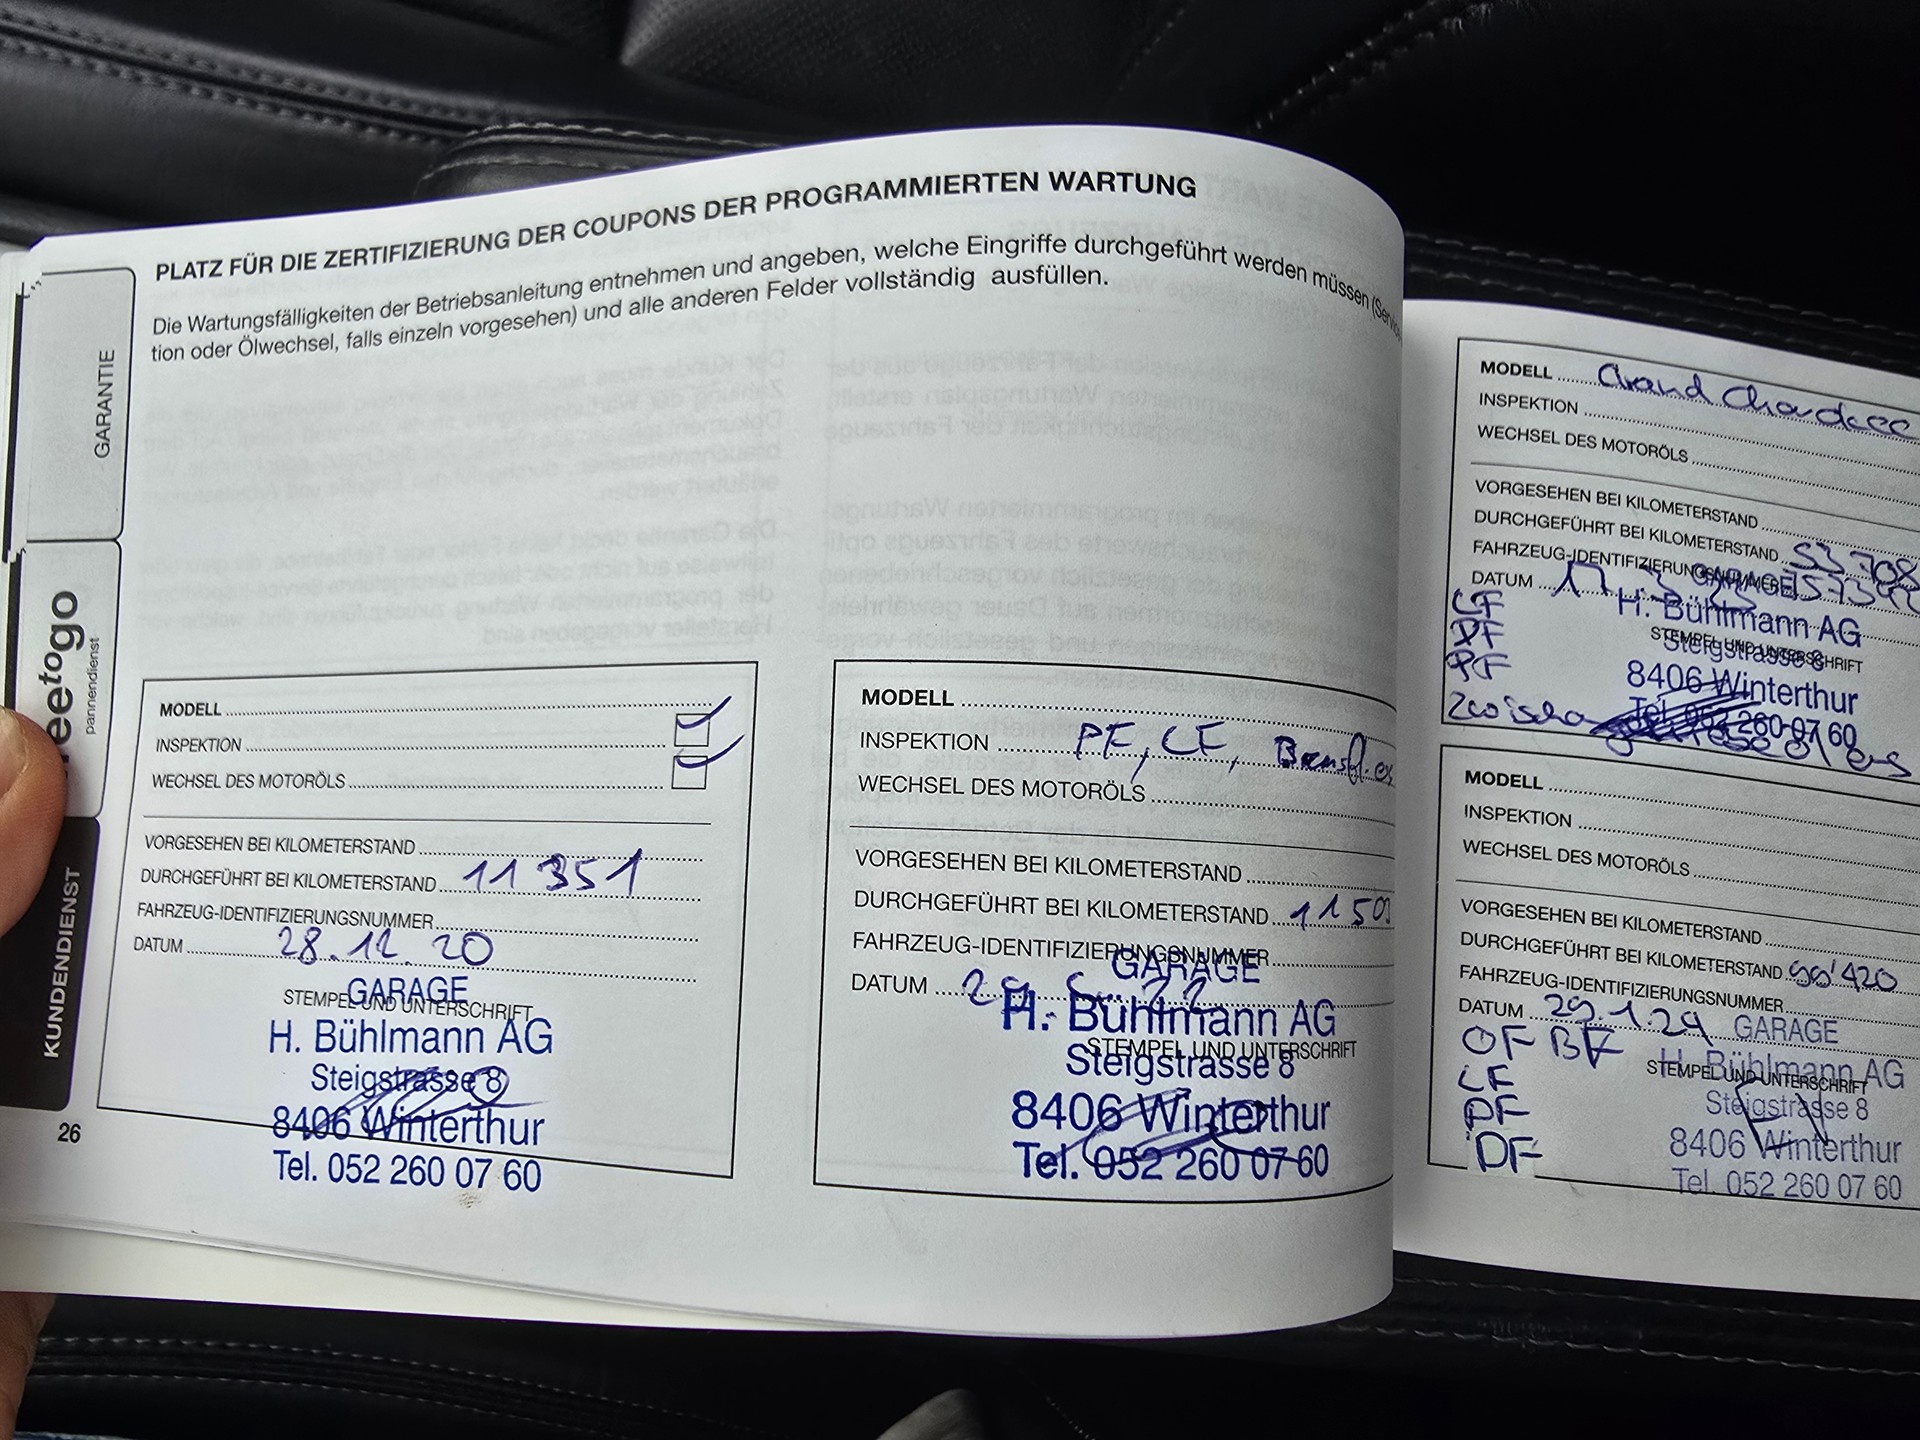 PLATZ FÜR DIE ZERTIFIZIERUNG DER COUPONS DER PROGRAMMIERTEN WARTUNG
Die Wartungsfälligkeiten der Betriebsanleitung entnehmen und angeben, welche Eingriffe durchgeführt werden müssen (Service-
tion oder Ölwechsel, falls einzeln vorgesehen) und alle anderen Felder vollständig ausfüllen.
GARANTIE
eetogo
pannendienst
KUNDENDIENST
26
MODELL
INSPEKTION
WECHSEL DES MOTORÖLS
VORGESEHEN BEI KILOMETERSTAND
DURCHGEFÜHRT BEI KILOMETERSTAND 11 351
FAHRZEUG-IDENTIFIZIERUNGSNUMMER
DATUM 28.12.20
STEMPEL UND UNTERSCHRIFT
GARAGE
H. Bühlmann AG
Steigstrasse 8
8406 Winterthur
Tel. 052 260 07 60
MODELL
INSPEKTION PF, CF,
WECHSEL DES MOTORÖLS
VORGESEHEN BEI KILOMETERSTAND
DURCHGEFÜHRT BEI KILOMETERSTAND
FAHRZEUG-IDENTIFIZIERUNGSNUMMER
DATUM
STEMPEL UND UNTERSCHRIFT
GARAGE
H. Bühlmann AG
Steigstrasse 8
8406 Winterthur
Tel. 052 260 07 60
MODELL Grand
INSPEKTION
WECHSEL DES MOTORÖLS
VORGESEHEN BEI KILOMETERSTAND
DURCHGEFÜHRT BEI KILOMETERSTAND 53 708
FAHRZEUG-IDENTIFIZIERUNGSNUMMER
DATUM
STEMPEL UND UNTERSCHRIFT
GARAGE
H. Bühlmann AG
Steigstrasse 8
8406 Winterthur
Tel. 052 260 07 60
PF
MODELL
INSPEKTION
WECHSEL DES MOTORÖLS
VORGESEHEN BEI KILOMETERSTAND
DURCHGEFÜHRT BEI KILOMETERSTAND
FAHRZEUG-IDENTIFIZIERUNGSNUMMER
DATUM 29.1.24
OF BF
CF
PF
DF
STEMPEL UND UNTERSCHRIFT
GARAGE
H. Bühlmann AG
Steigstrasse 8
8406 Winterthur
Tel. 052 260 07 60